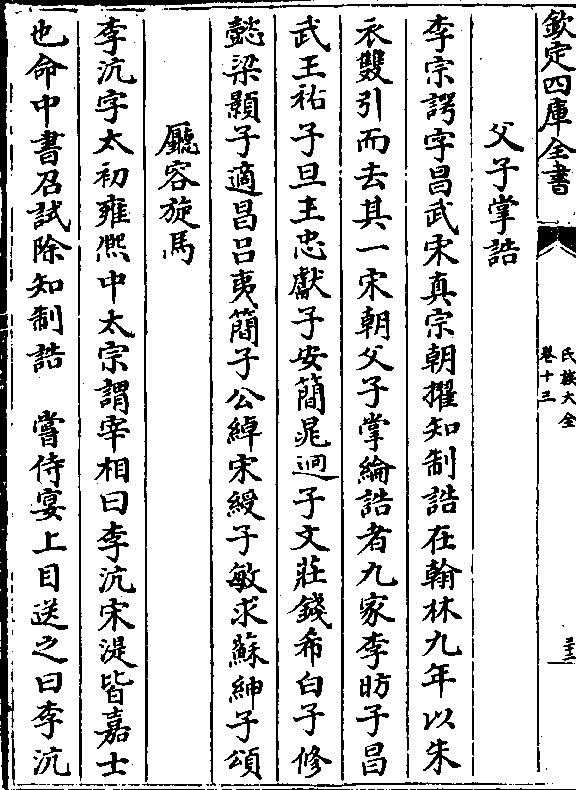 欽定四庫全書
氏族大全
卷十三
父子掌誥
李宗諤字昌武宋真宗朝擢知制誥在翰林九年以朱
衣雙引而去其一宋朝父子掌綸誥者九家李昉子昌
武王祐子旦王忠獻子安簡晁迥子文莊錢希白子修
懿梁顥子適昌吕夷簡子公綽宋綬子敏求蘇紳子頌
廳容旋馬
李沆字太初雍熙中太宗謂宰相曰李沆宋湜皆嘉士
也命中書召試除知制誥　嘗侍宴上目送之曰李沆